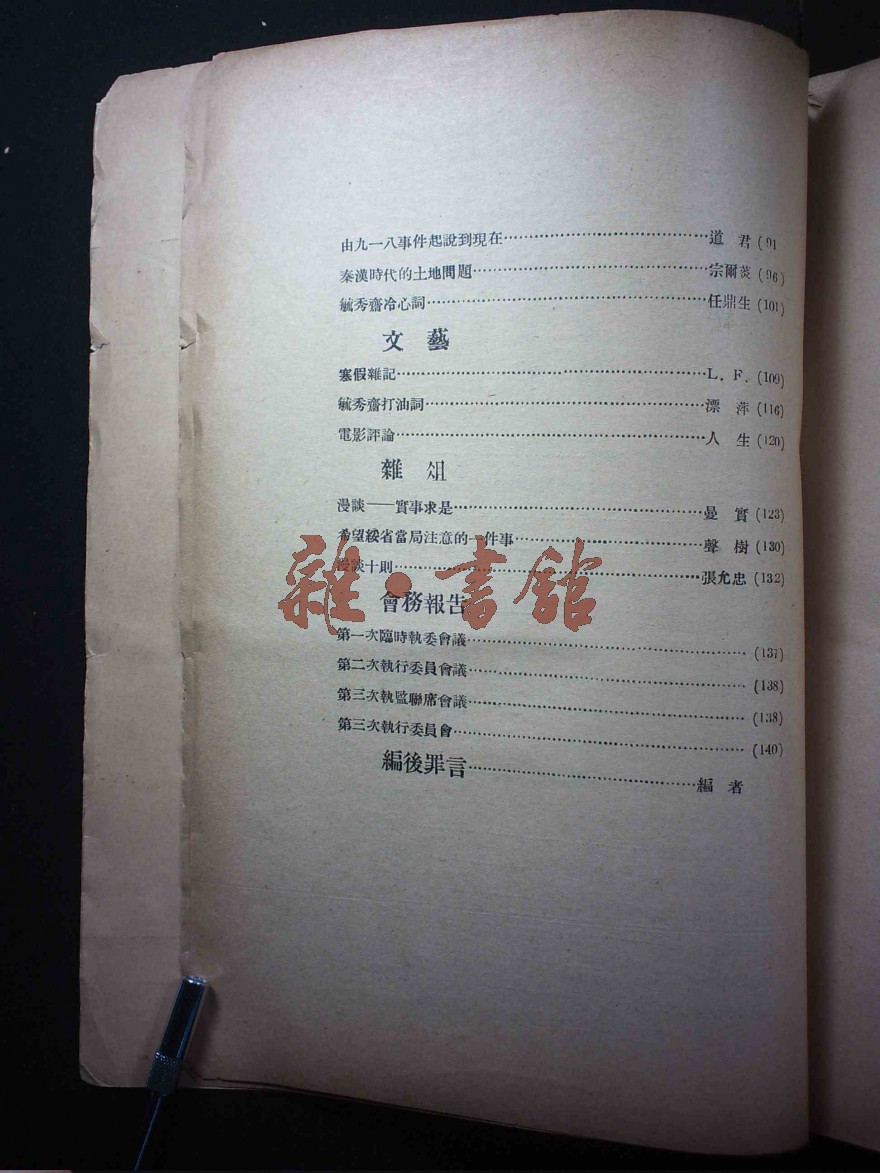 由九一八事件起說到現在……道 君 (91
秦漢時代的土地問題……宗爾葵 (96)
毓秀齋冷心詞……任鼎生 (101)
文 藝
寒假雜記……L. F. (109)
毓秀齋打油詞……漂 萍 (116)
電影評論……人 生 (120)
雜 俎
漫談——實事求是……曼 實 (123)
希望綏省當局注意的一件事……聲 樹 (130)
漫談十則……張允忠 (132)
雜·書館
會務報告
第一次臨時執委會議……(137)
第二次執行委員會議……(138)
第三次執監聯席會議……(138)
第三次執行委員會……(140)
編後罪言……編 者